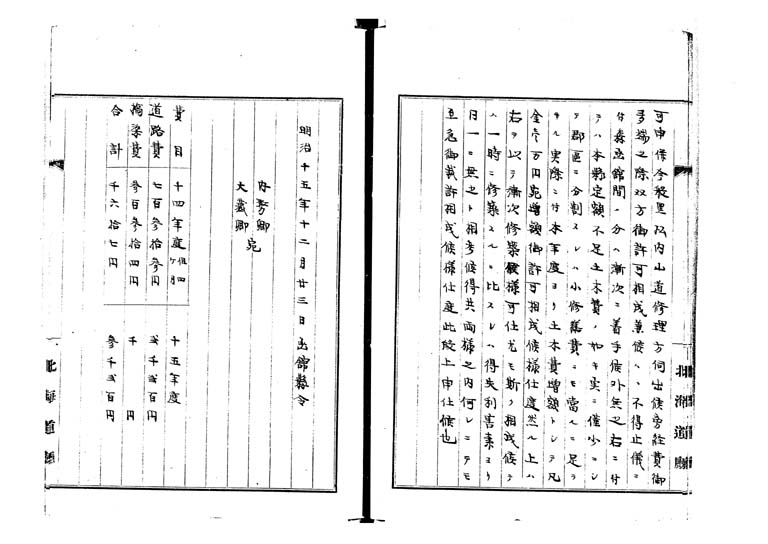 可申候今般黒松内山道修理方伺出候旁経費御
多端之際双方御許可相成兼候ハヽ不得止儀ニ
付森函館間ノ分ハ漸次ニ着手候外無之右ニ付
テハ本県定額不足土木費ノ如キ実ニ僅少ニシ
テ郡区ニ分割スレハ小修繕費ニモ当ルニ足ラ
サル実際ニ付本年度ヨリ土木費増額トシテ凡
金壱万円宛増額御許可相成候様仕度然ル上ハ
右ヲ以テ漸次修築候様可仕尤モ斯ク相成候テ
ハ一時ニ修築スルニ比スレハ得失利害素ヨリ
日一ニ無之ト相考候得共両様之内何レニテモ
至急御裁許相成候様仕度此段上申仕候也
北海道廳
明治十五年十二月廿三日 函館縣令
内務卿
大蔵卿 宛
費目 十四年度但四ヶ月 十五年度
道路費 七百参拾参円 弐千弐百円
橋梁費 参百参拾四円 千円
合計 千六拾七円 参千弐百円
北海道廳